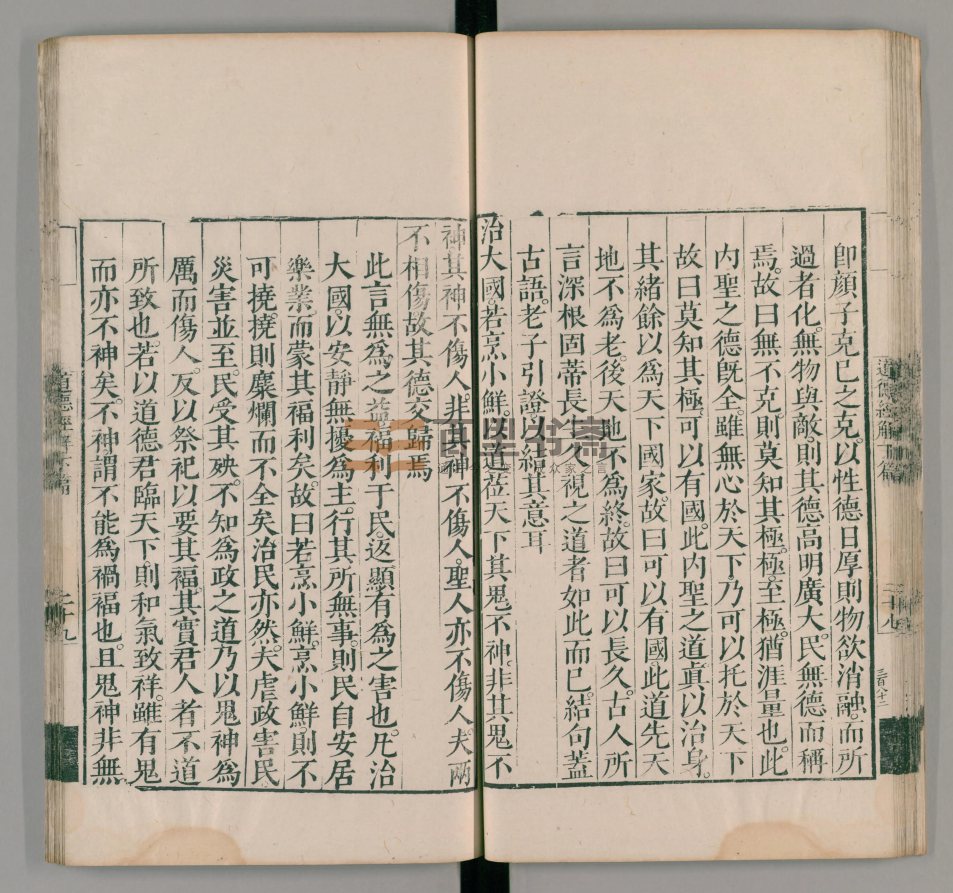 即顏子克己之克。以性德日厚則物欲消融。而所
過者化。無物與敵。則其德高明廣大。民無德而稱
焉。故曰無不克則莫知其極。極至極。猶涯量也。此
内聖之德旣全。雖無心於天下。乃可以托於天下
故曰莫知其極。可以有國。此内聖之道眞以治身。
其緒餘以爲天下國家。故曰可以有國。此道先天
地不爲老。後天地不爲終。故曰可以長久。古人所
言深根固蔕長生久視之道者如此而已。結句蓋
古語。老子引證以結其意耳
治大國。若烹小鮮。以道莅天下。其鬼不神。非其鬼不
神。其神不傷人。非其神不傷人。聖人亦不傷人。夫兩
不相傷故其德交歸焉
此言無爲之益福利于民。返顯有爲之害也。凡治
大國。以安靜無擾爲主。行其所無事。則民自安居
樂業。而蒙其福利矣。故曰若烹小鮮。烹小鮮則不
可撓。撓則麋爛而不全矣。治民亦然。夫虐政害民
災害並至。民受其殃。不知爲政之道。乃以鬼神爲
厲而傷人。反以祭祀以要其福。其實君人者不道
所致也。若以道德君臨天下。則和氣致祥。雖有鬼
而亦不神矣。不神謂不能爲禍福也。且鬼神非無
道德經解下篇
二十九
道德經解下篇
二十九